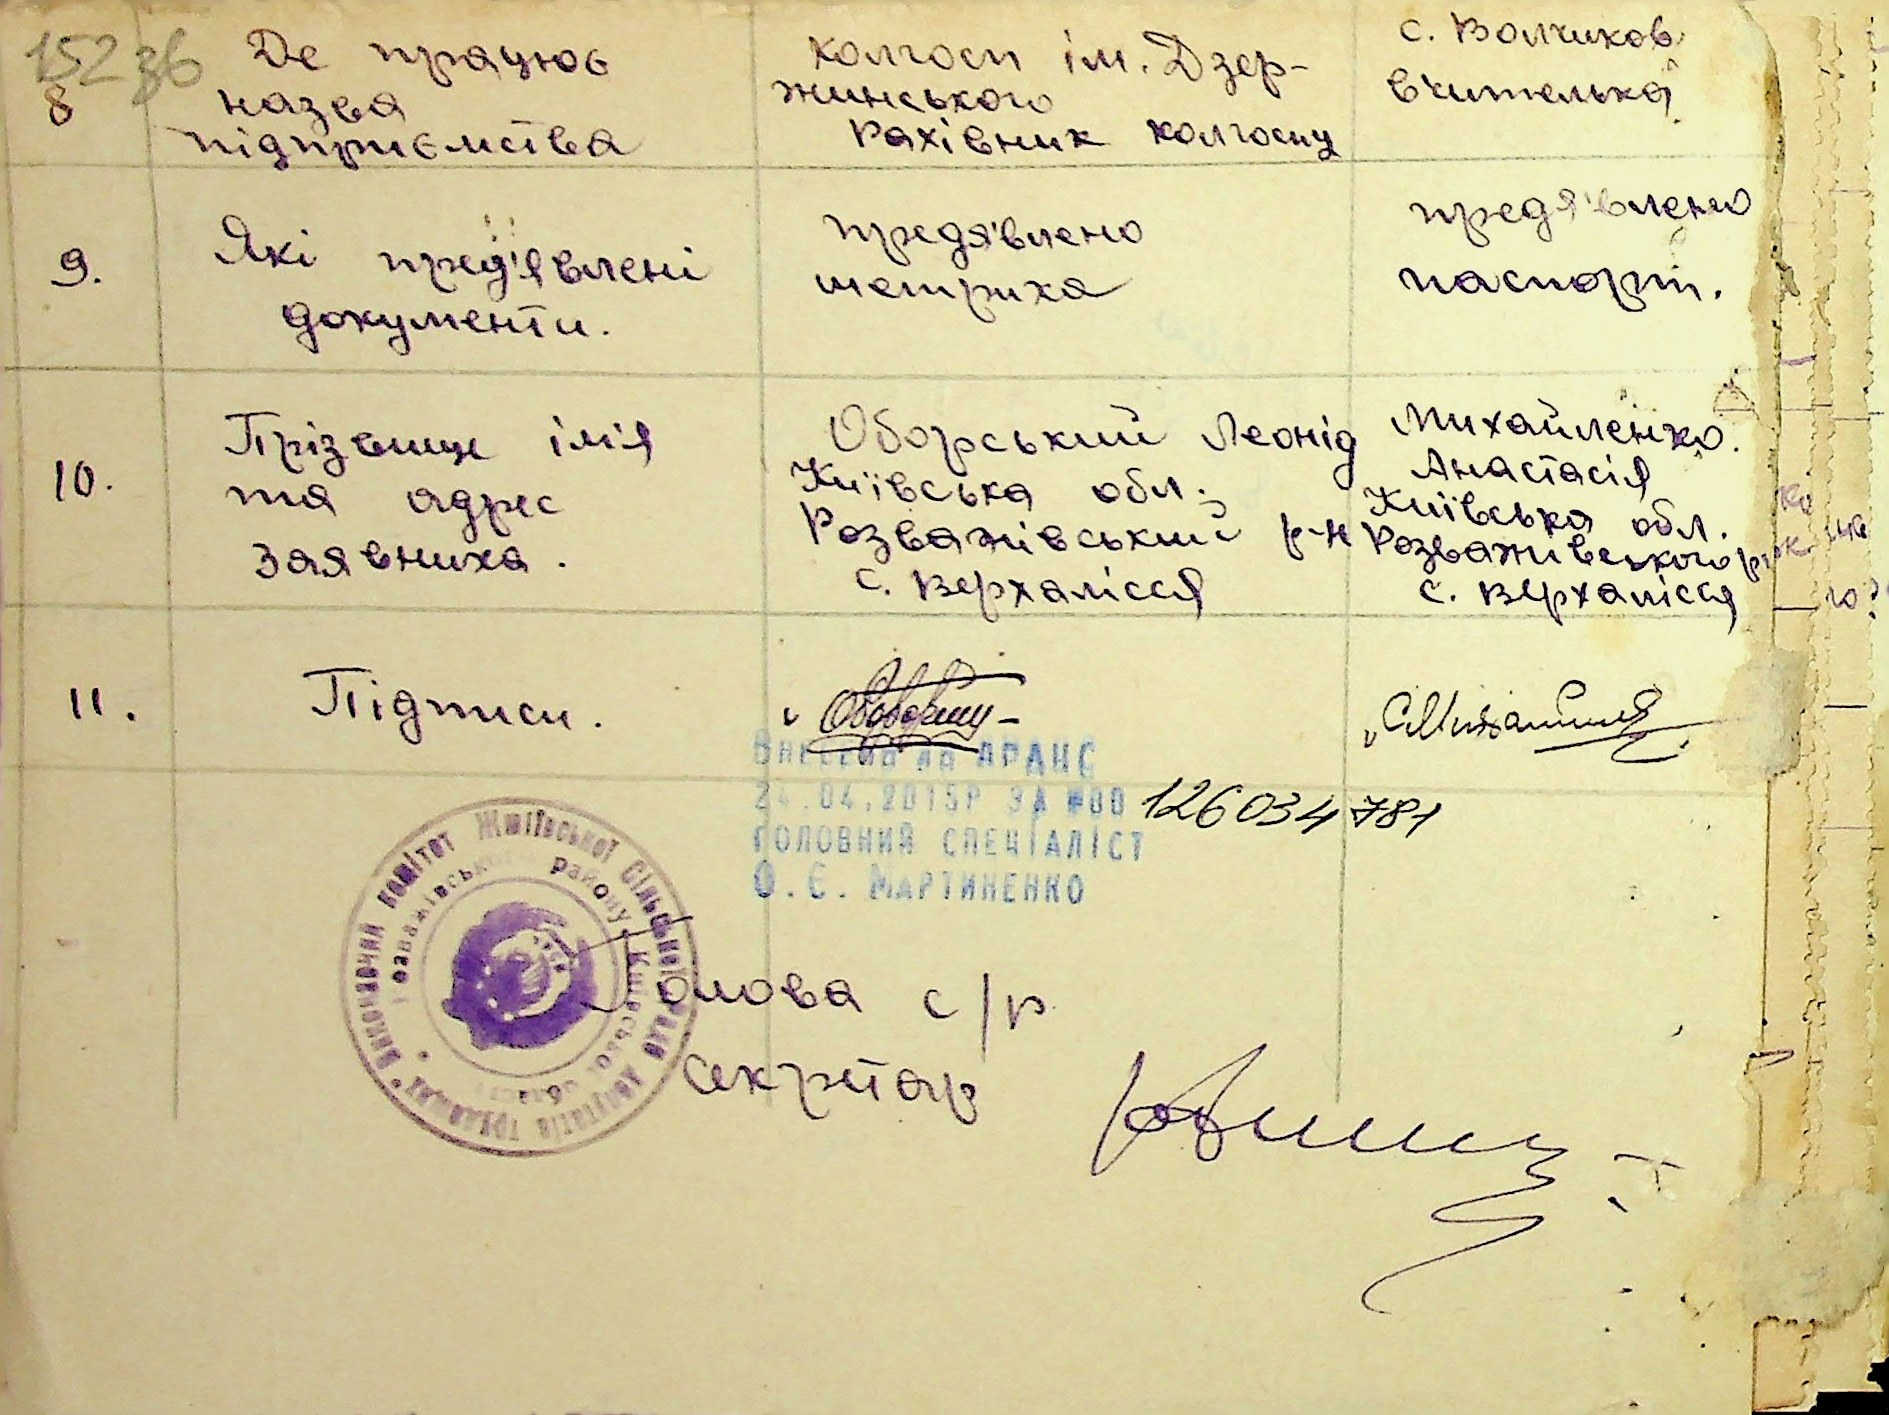 152 зв
8
Де працює
назва
підприємства
колгосп ім. Дзер-
жинського
Рахівник колгоспу
с. Волчиков
вчителька
9.
Які пред'явлені
документи.
предя'влено
метрика
предя'влено
паспорт.
10.
Прізвище імія
та адрес
заявника.
Оборський Леонід
Київська обл.
Розважівський р-н
с. Верхалісся
Михайленко
Анастасія
Київська обл.
Розважівського р
с. Верхалісся
11.
Підписи.
Внесено до ДРАЦС
24.04.2015Р ЗА №00 126034781
ГОЛОВНИЙ СПЕЦІАЛІСТ
О.Є. МАРТИНЕНКО
Виконавчий комітет Жміївської Сільської Ради депутатів трудящих
Розважівського району, Київської області
Голова с/р
Секретар